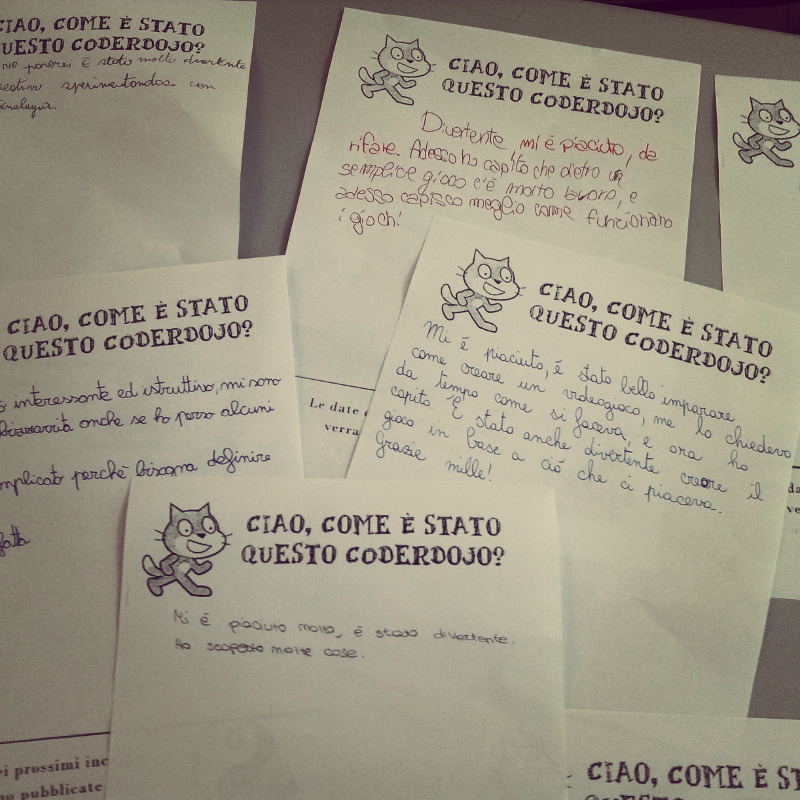 CIAO, COME È STATO
QUESTO CODERDOJO?
parere, è stato molto divertente
sperimentandosi con
CIAO, COME È STATO
QUESTO CODERDOJO?
Divertente, mi è piaciuto, da
rifare. Adesso ho capito che dietro un
semplice gioco c'è molto lavoro, e
adesso capisco meglio come funzionano
i giochi
Le date
verra
CIAO, COME È STATO
QUESTO CODERDOJO?
interessante ed istruttivo, mi sono
anche se ho perso alcuni
mplicato perchè bisogna definire
fatta
ei prossimi inc
no pubblicate
CIAO, COME È STATO
QUESTO CODERDOJO?
Mi é piaciuto, é stato bello imparare
come creare un videogioco, me lo chiedevo
da tempo come si faceva, e ora ho
capito. É stato anche divertente creare il
gioco in base a ció che ci piaceva.
Grazie mille!
da
ve
CIAO, COME È STATO
QUESTO CODERDOJO?
Mi é piaciuto molto, é stato divertente.
Ho scoperto molte cose.
CIAO, COME È ST